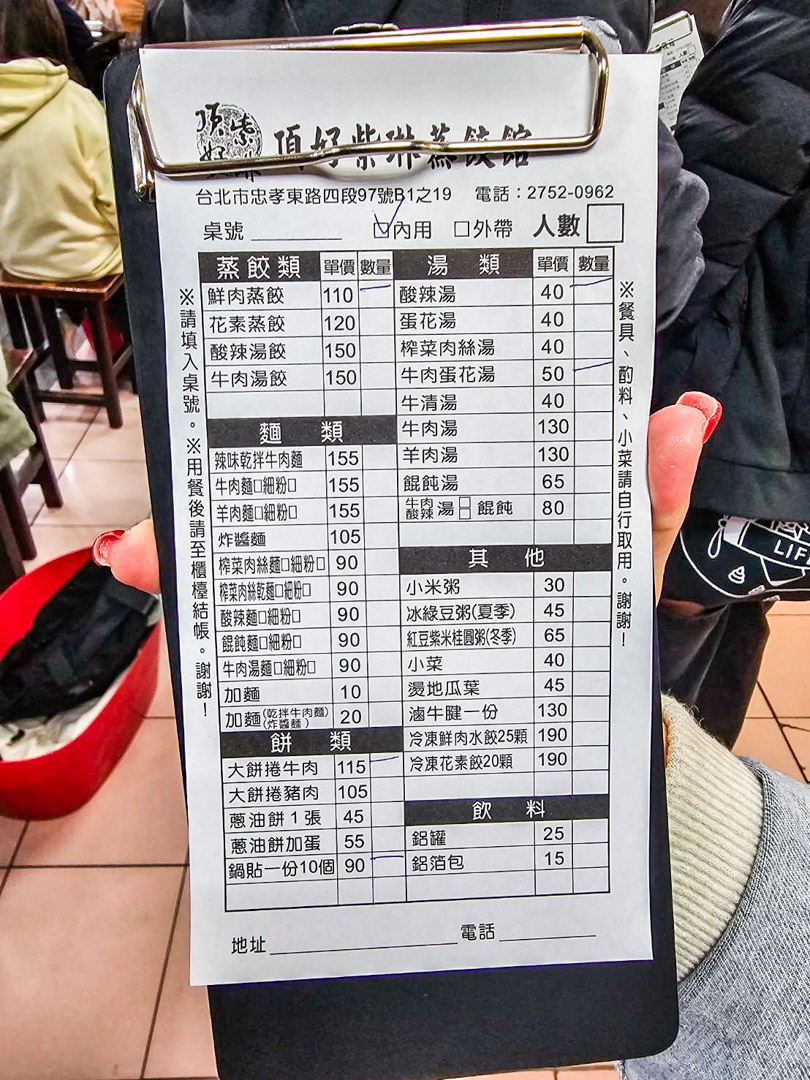 頂好紫琳蒸餃館
台北市忠孝東路四段97號B1之19 電話：2752-0962
桌號 □內用 □外帶 人數
※請填入桌號。※用餐後請至櫃檯結帳。謝謝！
蒸餃類 單價 數量
鮮肉蒸餃 110
花素蒸餃 120
酸辣湯餃 150
牛肉湯餃 150
麵類
辣味乾拌牛肉麵 155
牛肉麵□細粉□ 155
羊肉麵□細粉□ 155
炸醬麵 105
榨菜肉絲麵□細粉□ 90
榨菜肉絲乾麵□細粉□ 90
酸辣麵□細粉□ 90
餛飩麵□細粉□ 90
牛肉湯麵□細粉□ 90
加麵 10
加麵(乾拌牛肉麵)(炸醬麵) 20
餅類
大餅捲牛肉 115
大餅捲豬肉 105
蔥油餅1張 45
蔥油餅加蛋 55
鍋貼一份10個 90
湯類 單價 數量
酸辣湯 40
蛋花湯 40
榨菜肉絲湯 40
牛肉蛋花湯 50
牛清湯 40
牛肉湯 130
羊肉湯 130
餛飩湯 65
牛肉□酸辣□湯餛飩 80
其他
小米粥 30
冰綠豆粥(夏季) 45
紅豆紫米桂圓粥(冬季) 65
小菜 40
燙地瓜葉 45
滷牛腱一份 130
冷凍鮮肉水餃25顆 190
冷凍花素餃20顆 190
飲料
鋁罐 25
鋁箔包 15
※餐具、酌料、小菜請自行取用。謝謝！
地址 電話
LIF